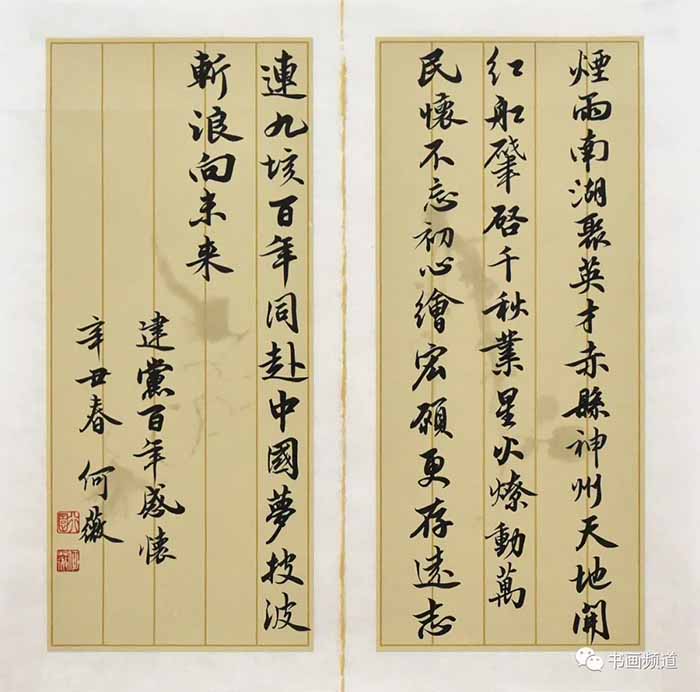 煙雨南湖聚英才赤縣神州天地開
红船肇啓千秋業星火燎動萬
民懷不忘初心繪宏願更存遠志
連九垓百年同赴中國夢披波
斬浪向未来
建黨百年感懷
辛丑春 何薇
书画频道